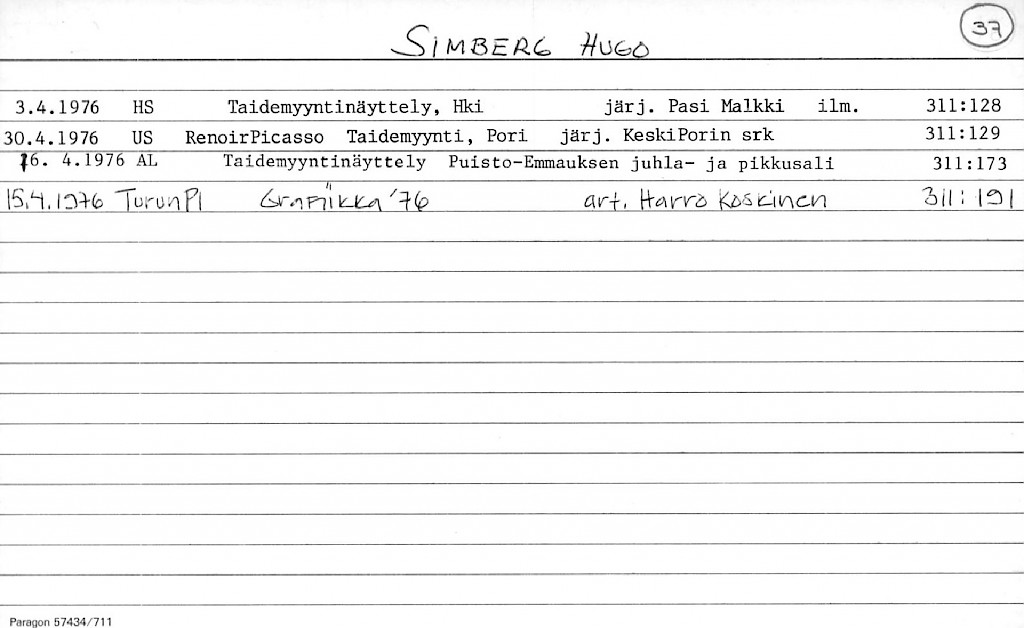 SIMBERG HUGO 37
3.4.1976 HS Taidemyyntinäyttely, Hki järj. Pasi Malkki ilm. 311:128
30.4.1976 US RenoirPicasso Taidemyynti, Pori järj. KeskiPorin srk 311:129
16. 4.1976 AL Taidemyyntinäyttely Puisto-Emmauksen juhla- ja pikkusali 311:173
15.4.1976 TurunPl Grafiikka '76 art. Harro Koskinen 311:191
Paragon 57434/711